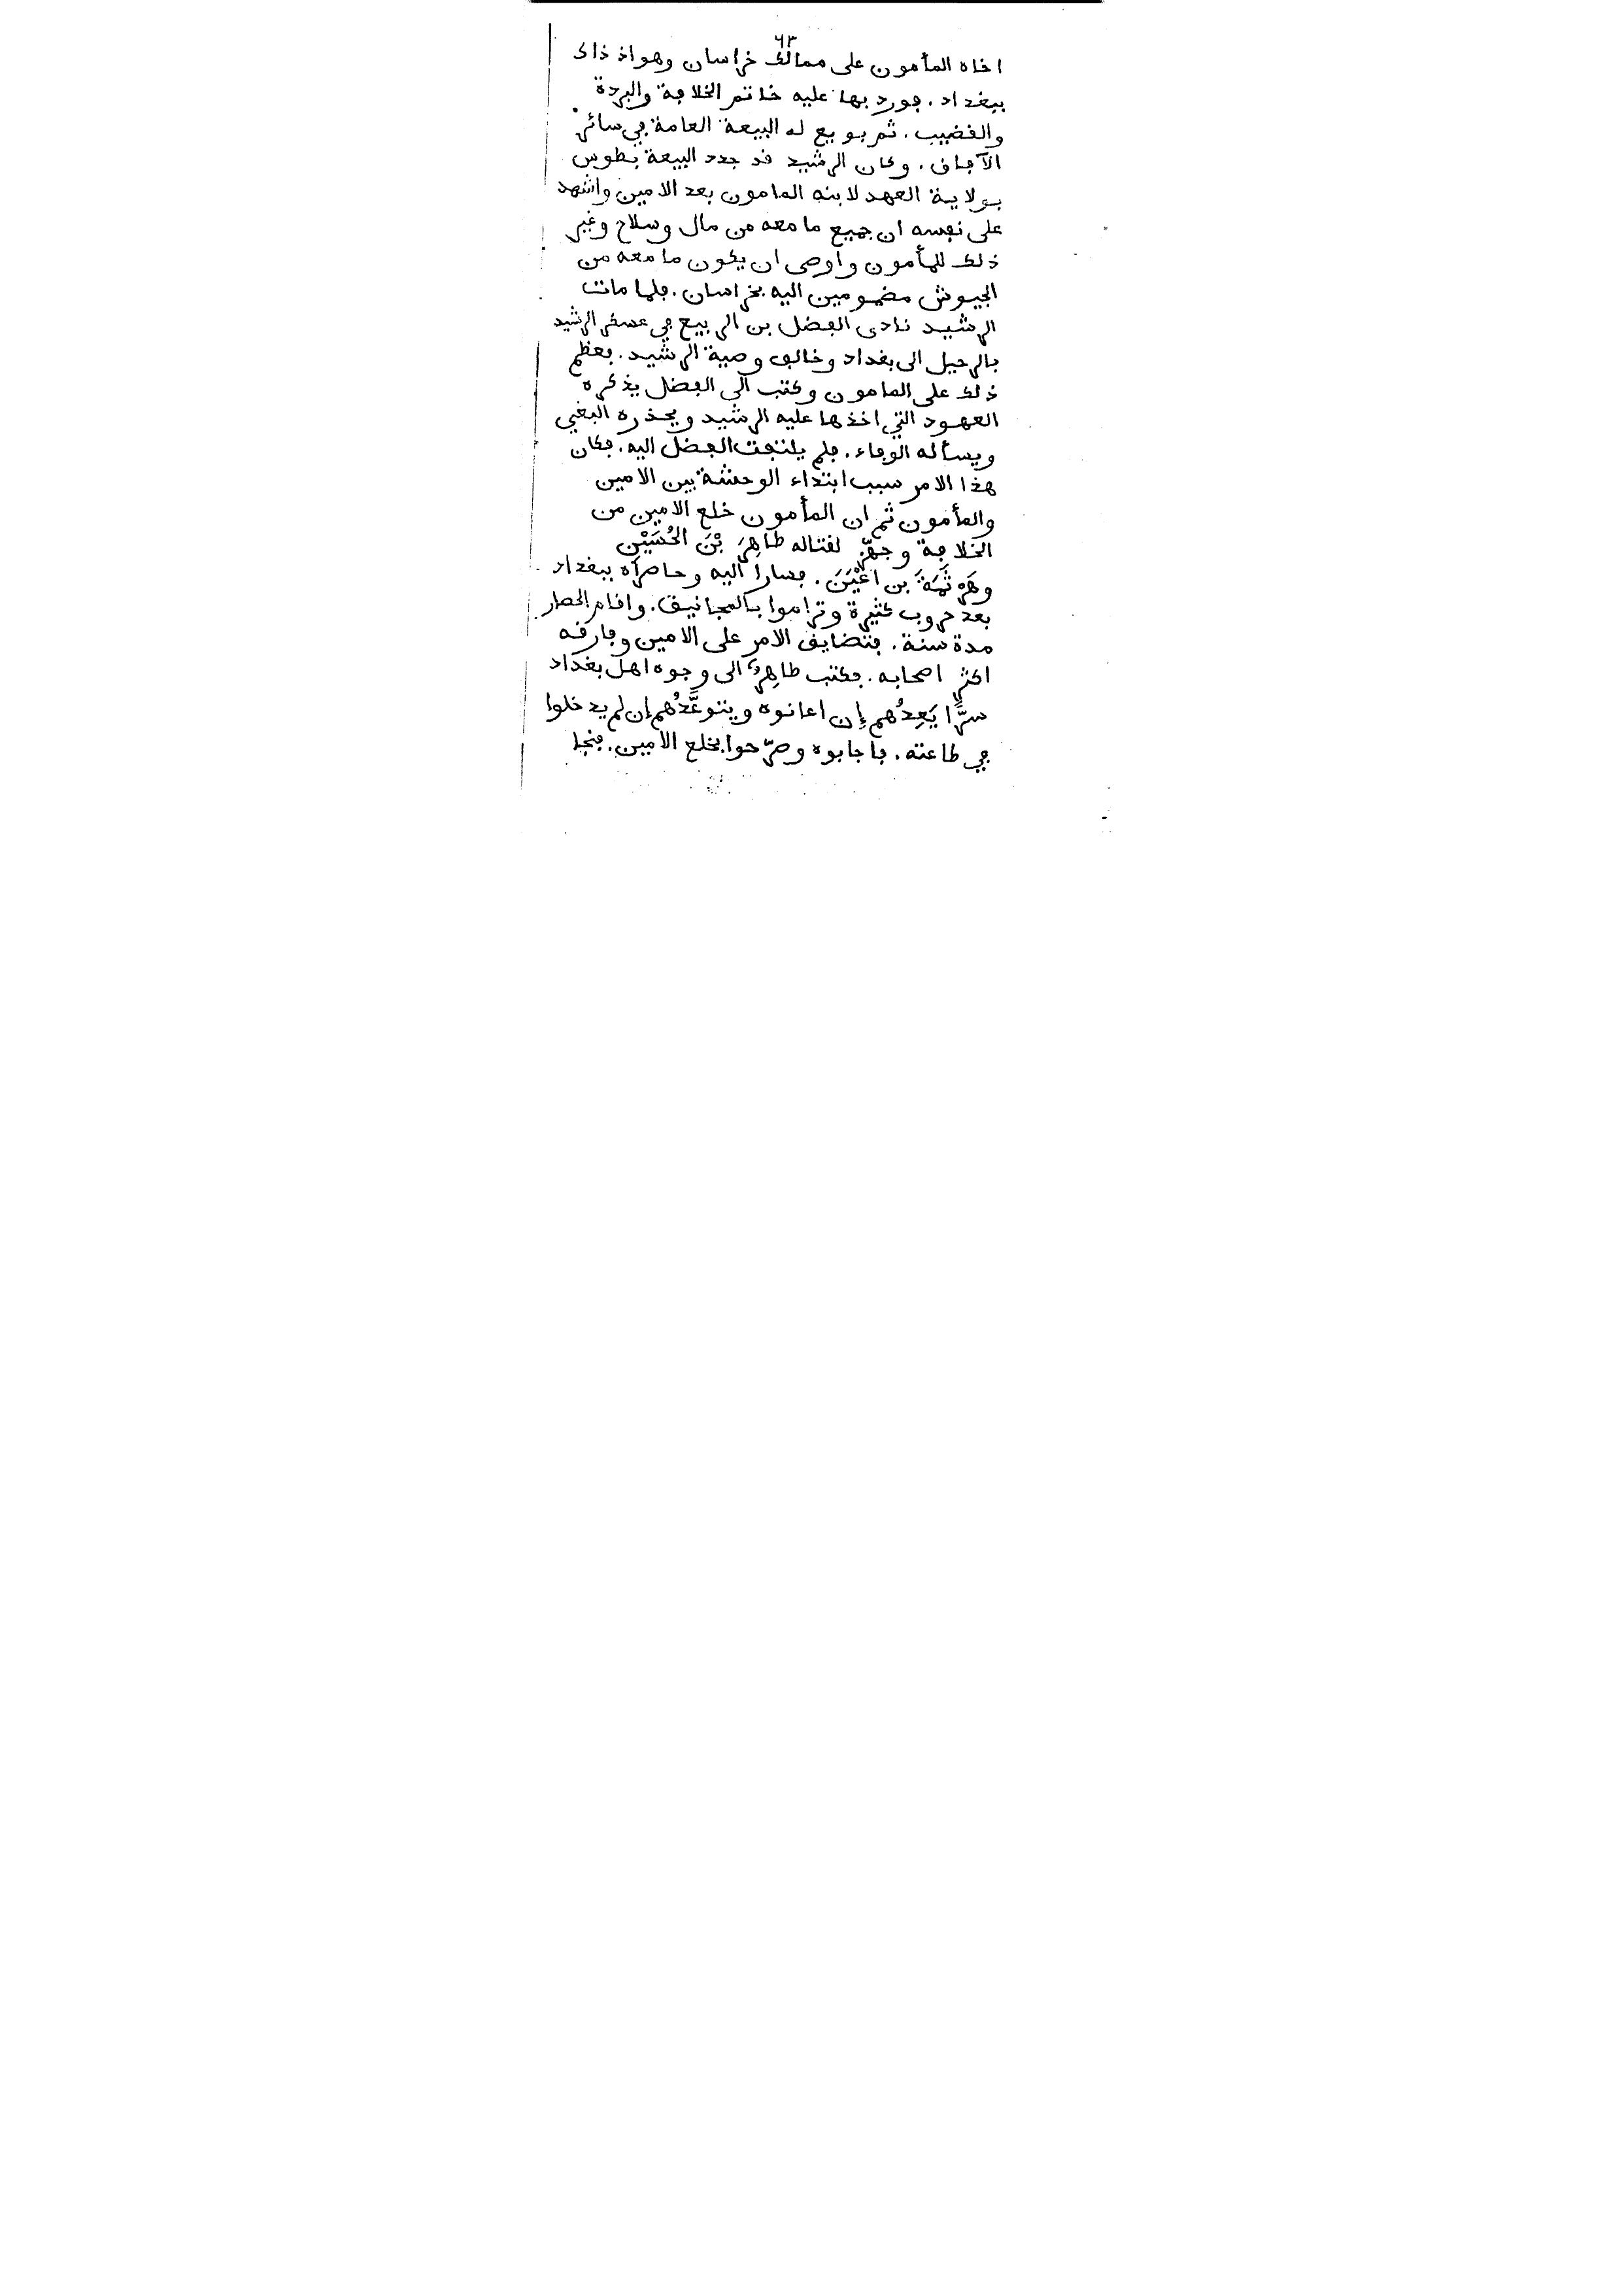 ٦٣
اخاه المأمون على ممالك خراسان وهو اذ ذاك
ببغداد. فورد بها عليه خاتم الخلافة والبردة
والقضيب. ثم بويع له البيعة العامة في سائر
الآفاق. وكان الرشيد قد جدد البيعة بطوس
بولاية العهد لابنه المامون بعد الامين واشهد
على نفسه ان جميع ما معه من مال وسلاح وغير
ذلك للمأمون واوصى ان يكون ما معه من
الجيوش مضمومين اليه بخراسان. فلما مات
الرشيد نادى الفضل بن الربيع في عسكر الرشيد
بالرحيل الى بغداد وخالف وصية الرشيد. فعظم
ذلك على المامون وكتب الى الفضل يذكره
العهود التي اخذها عليه الرشيد ويحذره البغي
ويسأله الوفاء. فلم يلتفت الفضل اليه. فكان
هذا الامر سبب ابتداء الوحشة بين الامين
والمأمون ثم ان المأمون خلع الامين من
الخلافة وجهّز لقتاله طاهِرَ بْنَ الحُسَيْنِ
وهَرْثَمَةَ بن اعْيَنَ. فسارا اليه وحاصراه ببغداد
بعد حروب كثيرة وتراموا بالمجانيق. واقام الحصار
مدة سنة. فتضايق الامر على الامين وفارقه
اكثر اصحابه. فكتب طاهِرٌ الى وجوه اهل بغداد
سرًّا يَعِدُهم إن اعانوه ويتوعَّدُهم إن لم يدخلوا
في طاعته. فاجابوه وصرّحوا بخلع الامين. فنجا